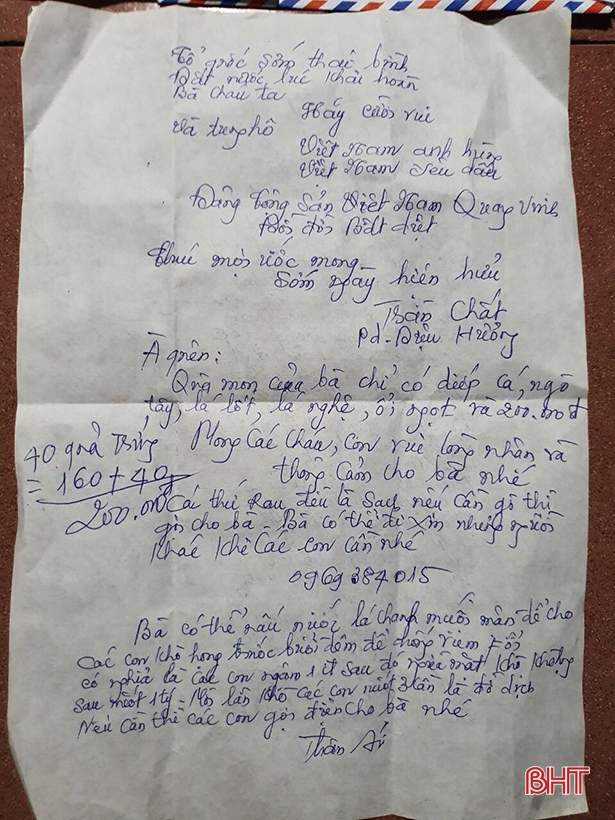 Tổ quốc sớm thái bình
Đất nước lúc khải hoàn
Bà cháu ta
Hãy cười vui
Và tung hô
Việt Nam anh hùng
Việt Nam yêu dấu
Đảng Cộng Sản Việt Nam Quang Vinh
Đời đời Bất diệt
Chúc mọi ước mong
Sớm ngày hiện hữu
Trần Chất
pd. Diệu Hưởng
À quên:
Quà mọn của bà chỉ có diếp cá, ngò
tây, lá lốt, lá nghệ, ổi ngọt và 200.000đ
Mong Các cháu, con vui lòng nhận và
thông cảm cho bà nhé
40 quả trứng
= 160 + 40
200.000
Các thứ rau đều là sạch nếu cần gì thì
gọi cho bà. Bà có thể đi xin những người
khác khi các con cần nhé
0969384015
Bà có thể nấu nước lá chanh muối mặn để cho
Các con khò họng trước buổi đêm để chống viêm Fổi
có nghĩa là các con ngậm 1 ít sau đó ngửa mặt khò khoảng
sau nuốt 1 tý. Mỗi lần khò các con nuốt 3 lần là đỡ dịch
Nếu cần thì các con gọi điện cho bà nhé
Thân Ái
BHT